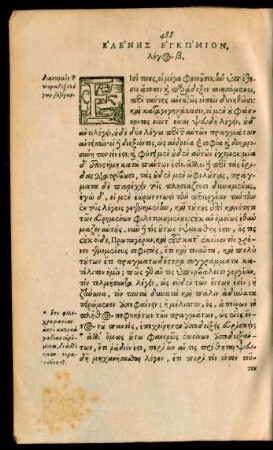 488
ΕΛΕΝΗΣ ΕΓΚΩΜΙΟΝ,
λόγος β.
Εἰσί τινες, οἳ μέγα φρονοῦσιν, ἂν ὑπόθεσιν
ἄτοπον καὶ παράδοξον ποιησάμενοι,
περὶ ταύτης ἀνεκτῶς εἰπεῖν δυνηθῶσι·
καὶ καταγεγηράκασιν, οἱ μὲν οὐ φάσκοντες
οἷόντ' εἶναι ψευδῆ λέγειν, οὐδ'
ἀντιλέγειν, οὐδὲ δύο λόγω περὶ τῶν αὐτῶν πραγμάτων
ἀντειπεῖν· οἱ δὲ διεξιόντες, ὡς ἀνδρεία καὶ σοφία καὶ δικαιοσύνη
ταυτόν ἐστι, καὶ φύσει μὲν οὐδὲν αὐτῶν ἔχομεν, μία
δ' ἐπιστήμη κατὰ πάντων ἐστίν. ἄλλοι δὲ περὶ τὰς ἔριδας
διατρίβουσι, τὰς οὐδὲν μὲν ὠφελούσας, πράγματα
δὲ παρέχειν τοῖς πλησιάζουσι δυναμένας.
ἐγὼ δ', εἰ μὲν ἑώρων νεωστὶ τὴν περιεργίαν ταύτην
ἐν τοῖς λόγοις γενομένην, καὶ τούτους ἐπὶ τῇ καινότητι
τῶν εὑρημένων φιλοτιμουμένους, οὐκ ἂν ὁμοίως ἐθαύμαζον
αὐτούς. νῦν δὲ τίς οὕτως ὀψιμαθής ἐστιν, ὅστις
οὐκ οἶδε, Πρωταγόραν, καὶ τοὺς κατ' ἐκεῖνον τὸν χρόνον
γενομένους σοφιστάς, ὅτι καὶ τοιαῦτα, καὶ πολὺ
τούτων ἔτι πραγματωδέστερα συγγράμματα κατέλιπον
ἡμῖν; πῶς γὰρ ἄν τις ὑπερβάλοιτο Γοργίαν,
τὸν τολμήσαντα λέγειν, ὡς οὐδὲν τῶν ὄντων ἐστίν; ἢ
Ζήνωνα, τὸν ταυτὰ δυνατὰ καὶ πάλιν ἀδύνατα
πειρώμενον ἀποφαίνειν; ἢ μέλισσον, ὃς, ἀπείρων τὸ
πλῆθος πεφυκότων τῶν πραγμάτων, ὡς ἑνὸς ὄντος
τοῦ παντὸς, ἐπεχείρησεν ἀποδείξεις εὑρίσκειν·
ἀλλ' ὅμως οὕτω φανερῶς ἐκείνων ἀποδειξάντων,
ὅτι ῥᾴδιόν ἐστι, περὶ ὧν ἄν τις προθῆται ψευδῆ
μηχανήσασθαι λόγον, ἔτι περὶ τὸν τόπον τοῦτον